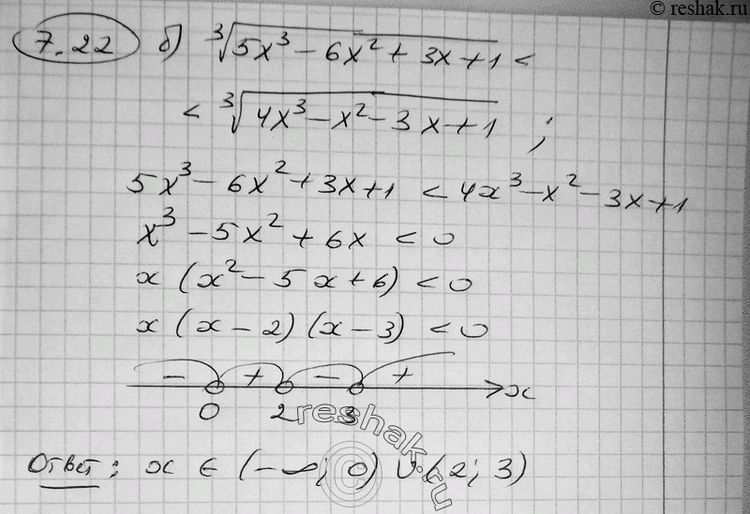 © reshak.ru
7.22 б) ∛(5x³ - 6x² + 3x + 1) <
< ∛(4x³ - x² - 3x + 1) ;
5x³ - 6x² + 3x + 1 < 4x³ - x² - 3x + 1
x³ - 5x² + 6x < 0
x (x² - 5x + 6) < 0
x (x - 2) (x - 3) < 0
- + - + x
0 2 3
reshak.ru
Ответ: x ∈ (-∞; 0) ∪ (2; 3)